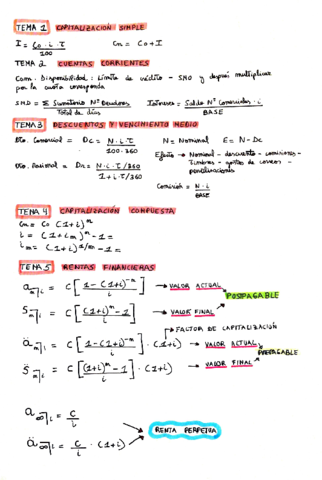 TEMA 1 CAPITALIZACIÓN SIMPLE
I = Co · i · t / 100   Cn = Co + I
TEMA 2 CUENTAS CORRIENTES
Com. Disponibilidad: Límite de crédito - SMD y después multiplicar
por la cuota correspondiente
SMD = Σ Sumatorio Nº Deudores / Total de días   Intereses = Saldo Nº Comerciales · i / BASE
TEMA 3 DESCUENTOS Y VENCIMIENTO MEDIO
Dto. Comercial = Dc = N · i · t / 100 · 360   N = Nominal   E = N - Dc
Efecto → Nominal - descuento - comisiones -
Timbres - gastos de correos -
penalizaciones
Dto. Racional = Dr = N · i · t/360 / 1 + i · t/360
Comisión = N · i / BASE
TEMA 4 CAPITALIZACIÓN COMPUESTA
Cn = Co (1+i)^n
i = (1+im)^m - 1 =
im = (1+i)^1/m - 1 =
TEMA 5 RENTAS FINANCIERAS
a n⌉i = C [1-(1+i)^-n / i] → VALOR ACTUAL
POSPAGABLE
S n⌉i = C [(1+i)^n - 1 / i] → VALOR FINAL
FACTOR DE CAPITALIZACIÓN
ä n⌉i = C [1-(1+i)^-n / i] · (1+i) → VALOR ACTUAL
PREPAGABLE
S̈ n⌉i = C [(1+i)^n - 1 / i] · (1+i) → VALOR FINAL
a ∞⌉i = C / i
RENTA PERPETUA
ä ∞⌉i = C / i · (1+i)